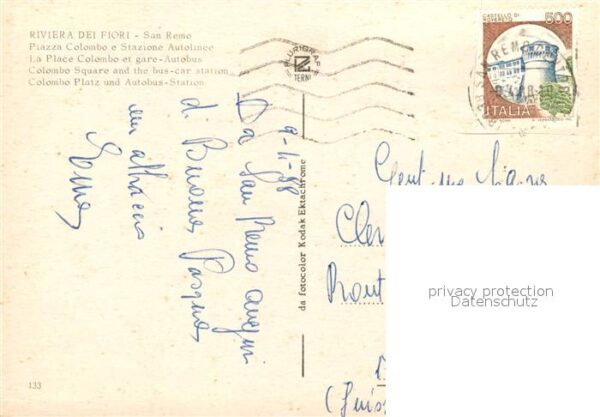 RIVIERA DEI FIORI - San Remo
Piazza Colombo e Stazione Autolinee
La Place Colombo et gare-Autobus
Colombo Square and the bus-car station
Colombo Platz und Autobus-Station
PLURIGRAF
TERNI
CASTELLO DI
ROVERETO
500
ITALIA
SAN REMO
9-4-88
Da San Remo auguri
di Buona Pasqua
un abbraccio
da fotocolor Kodak Ektachrome
Gent.me
Rout
(Suiss
privacy protection
Datenschutz
133